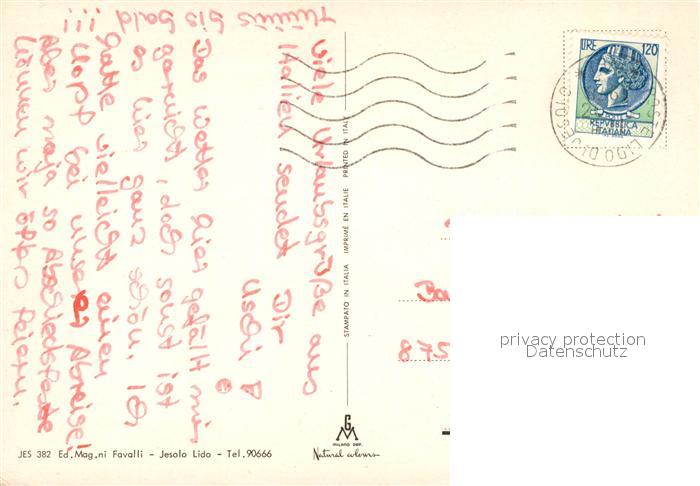 Viele Urlaubsgrüße aus
Italien sendet Dir
Uschi
Das Wetter hier gefällt mir
garnicht, doch sonst ist
es hier ganz schön. Ich
hatte vielleicht einen
bei unserer Abreise!
Aber naja so Abschiedsfeste
können wir öfter feiern.
!!!
bis bald
STAMPATO IN ITALIA IMPRIMÉ EN ITALIE PRINTED IN ITALY
LIRE 120
REPVBBLICA
ITALIANA
LIDO DI JESOLO
875
privacy protection
Datenschutz
GM
MILANO DEP.
Natural colours
JES 382 Ed.Mag.ni Favalli - Jesolo Lido - Tel.90666